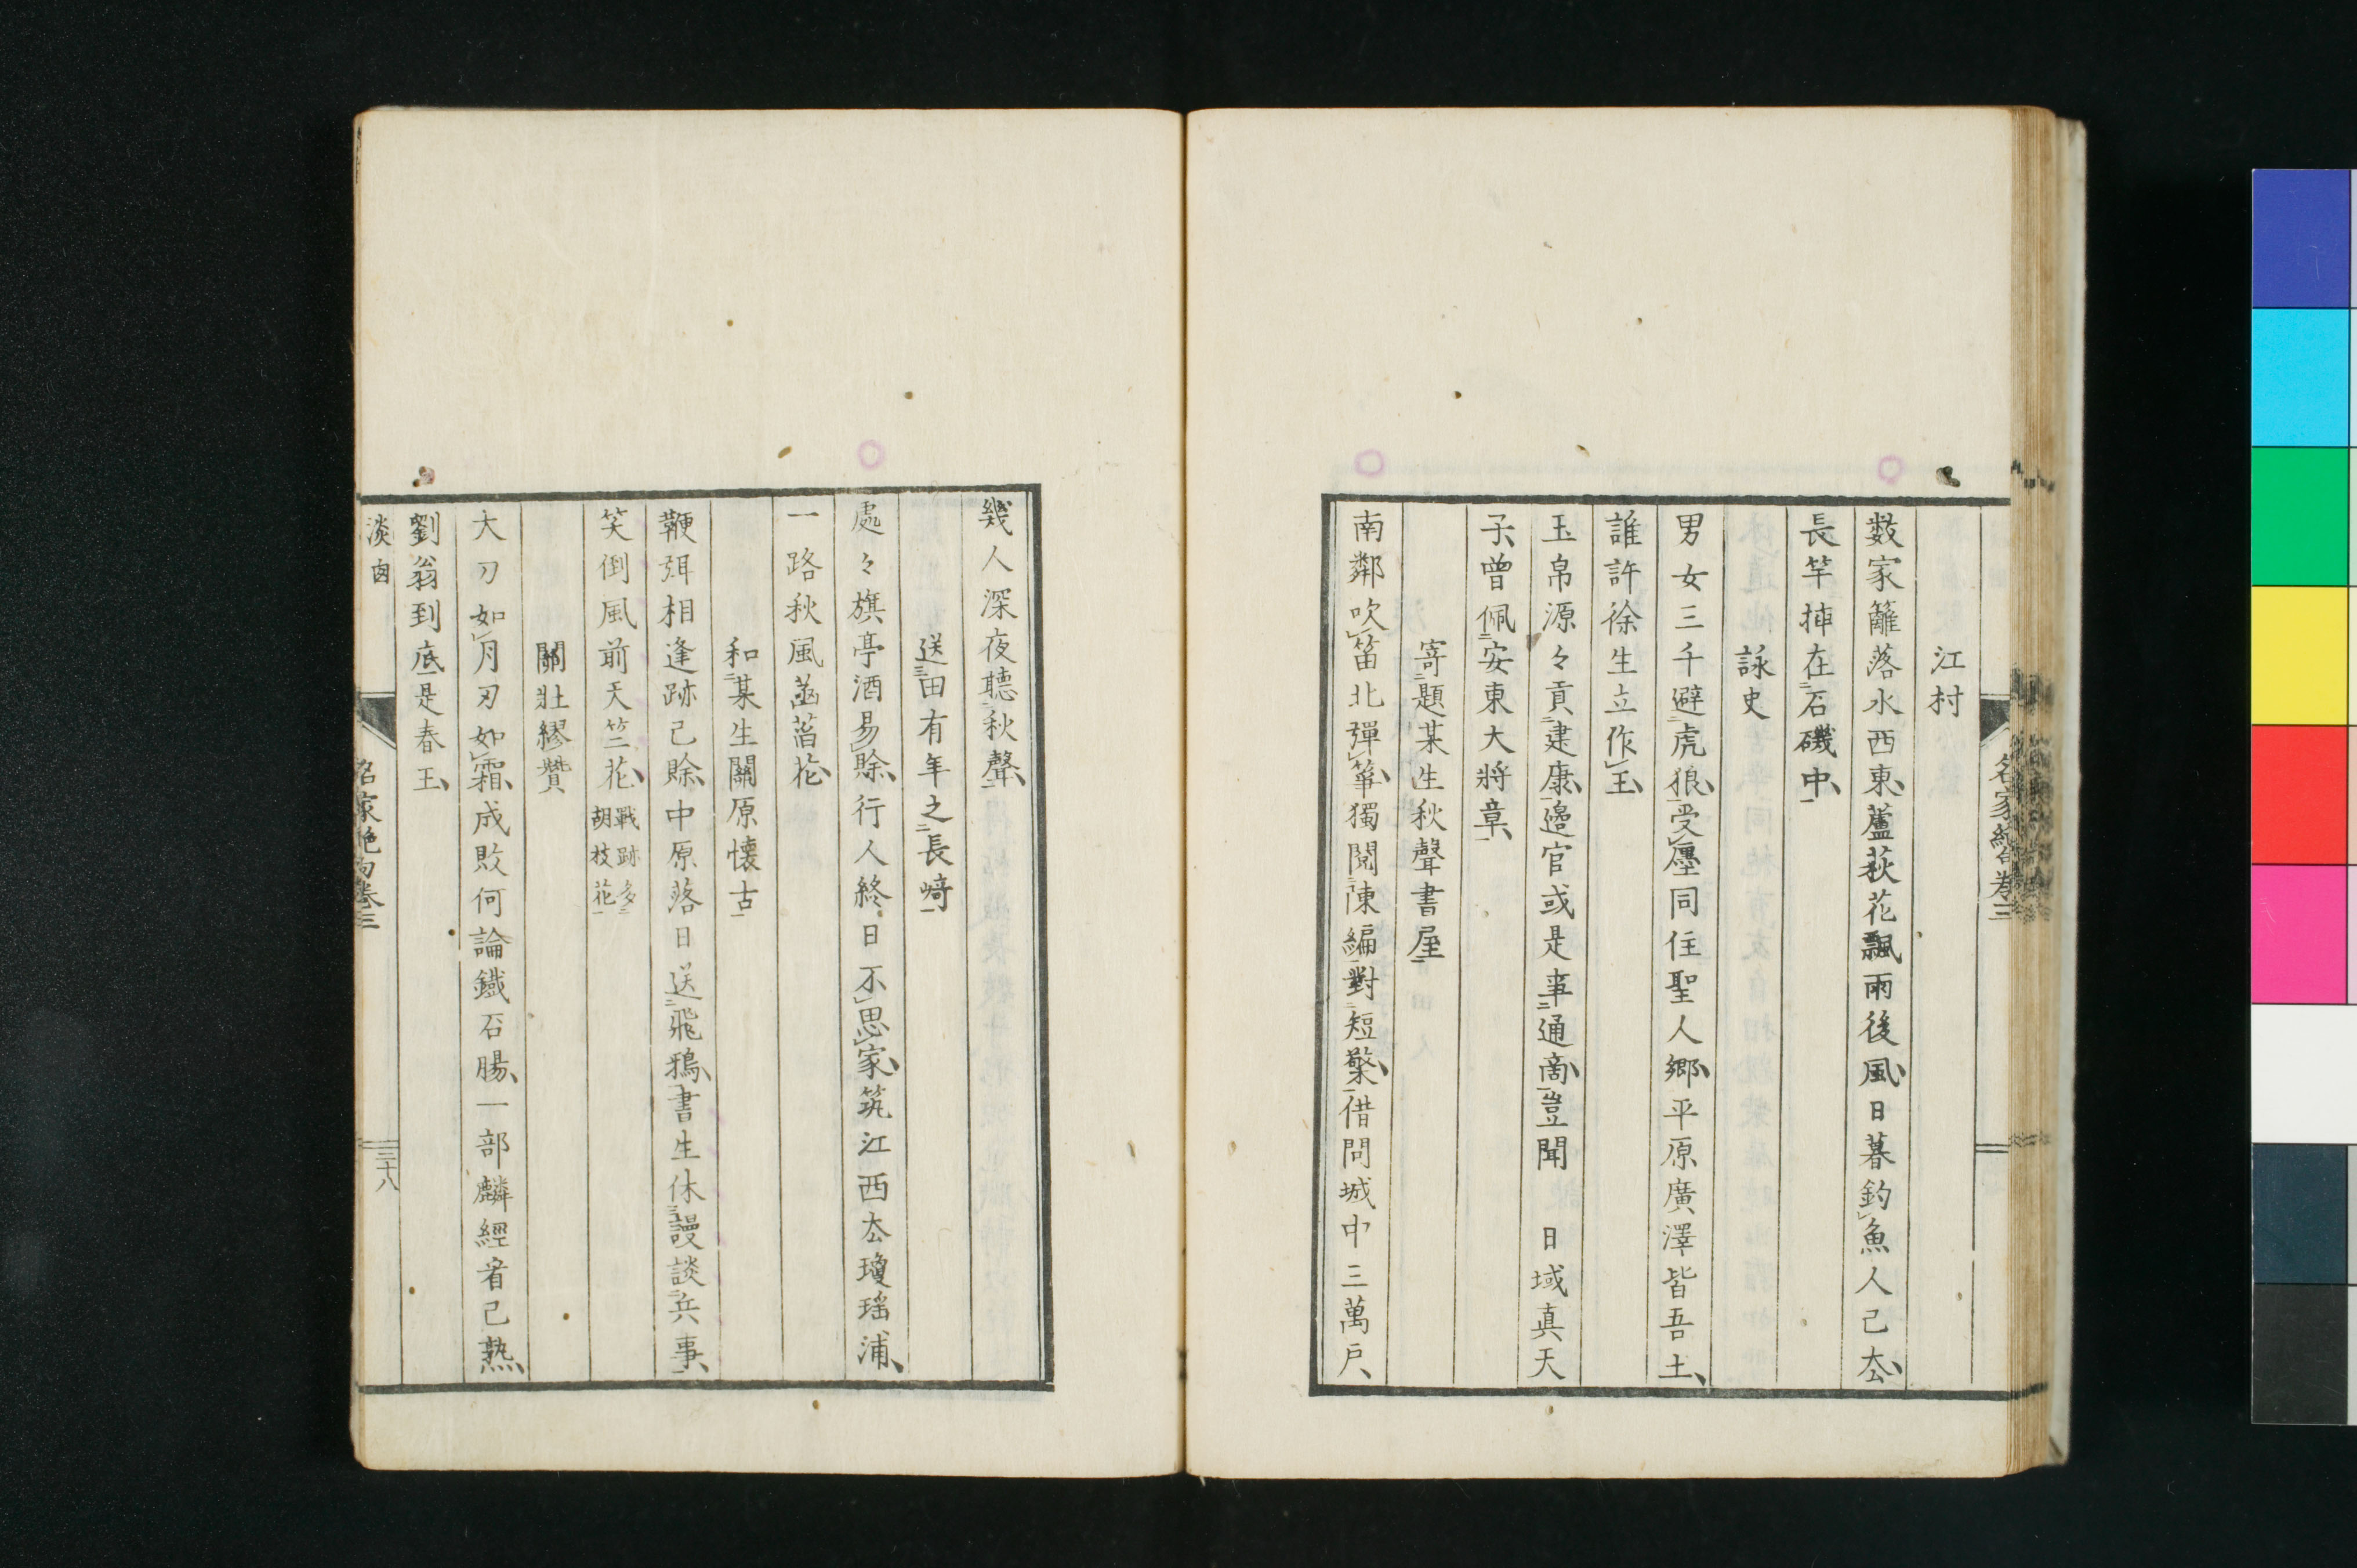 江村
数家籬落水西東蘆荻花飄雨後風日暮釣魚人已厺
長竿揷在石磯中
詠史
男女三千避虎狼受廛同住聖人鄉平原廣澤皆吾土
誰許徐生立作王
玉帛源々貢建康邉官或是事通商豈聞 日域真天
子曾佩安東大將章
寄題某生秋聲書屋
南鄰吹笛北彈箏獨閱陳編對短檠借問城中三萬戶
名家絶句卷三
幾人深夜聽秋聲
送田有年之長崎
處々旗亭酒易賒行人終日不思家筑江西厺瓊瑤浦
一路秋風菡萏花
和某生關原懷古
鞭弭相逢跡已賒中原落日送飛鴉書生休謾談兵事
笑倒風前天竺花 戰跡多
胡枝花
關壯繆贊
大刀如月刃如霜成敗何論鐵石腸一部麟經看已熟
劉翁到底是春王
淡囪
名家絶句卷三
三十八